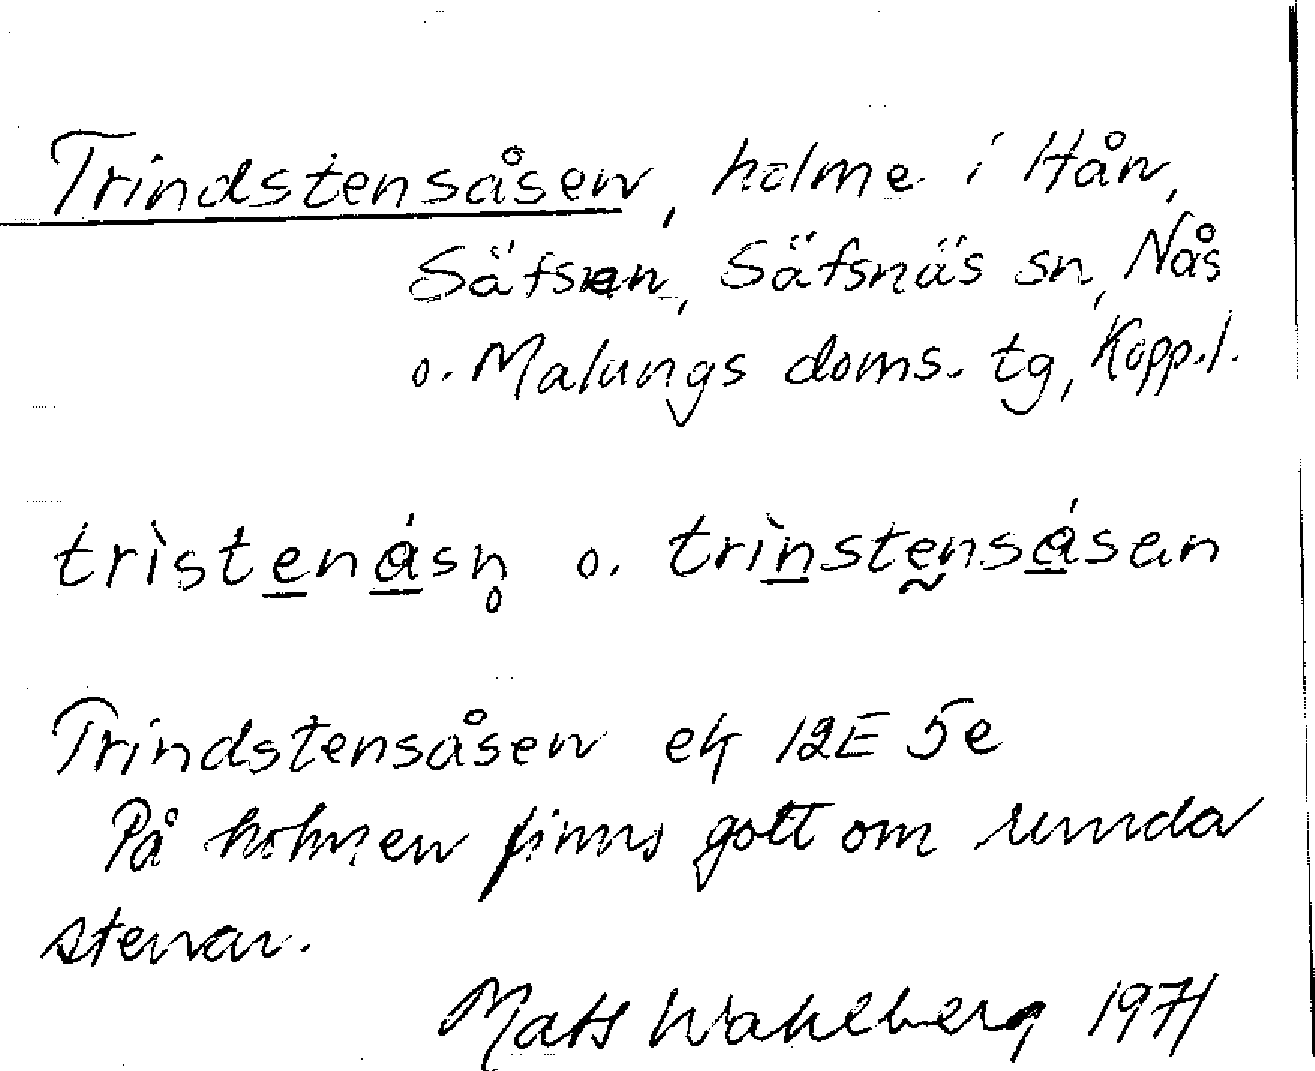 Trindstensåsen, holme i Hån,
Säfsen, Säfsnäs sn, Nås
o. Malungs doms. tg, Kopp.l.
trìste̲ná̲sn̥ o. trìn̲stḛnsá̲sen
Trindstensåsen ek 12E 5e
På holmen finns gott om runda
stenar.
Mats Wahlberg 1971